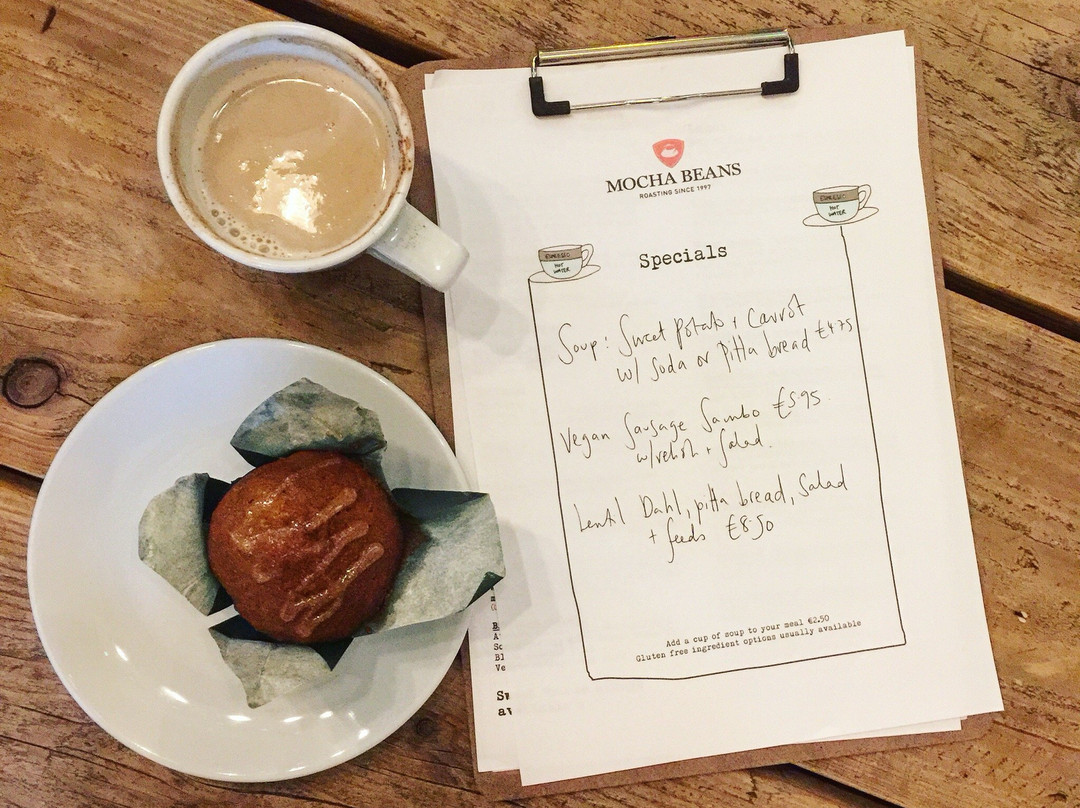 MOCHA BEANS
ROASTING SINCE 1997
ESPRESSO
HOT
WATER
ESPRESSO
HOT
WATER
Specials
Soup: Sweet potato + Carrot
w/ Soda or pitta bread €4.75
Vegan Sausage Sambo €5.95
w/relish + Salad.
Lentil Dahl, pitta bread, Salad
+ seeds €8.50
Add a cup of soup to your meal €2.50
Gluten free ingredient options usually available